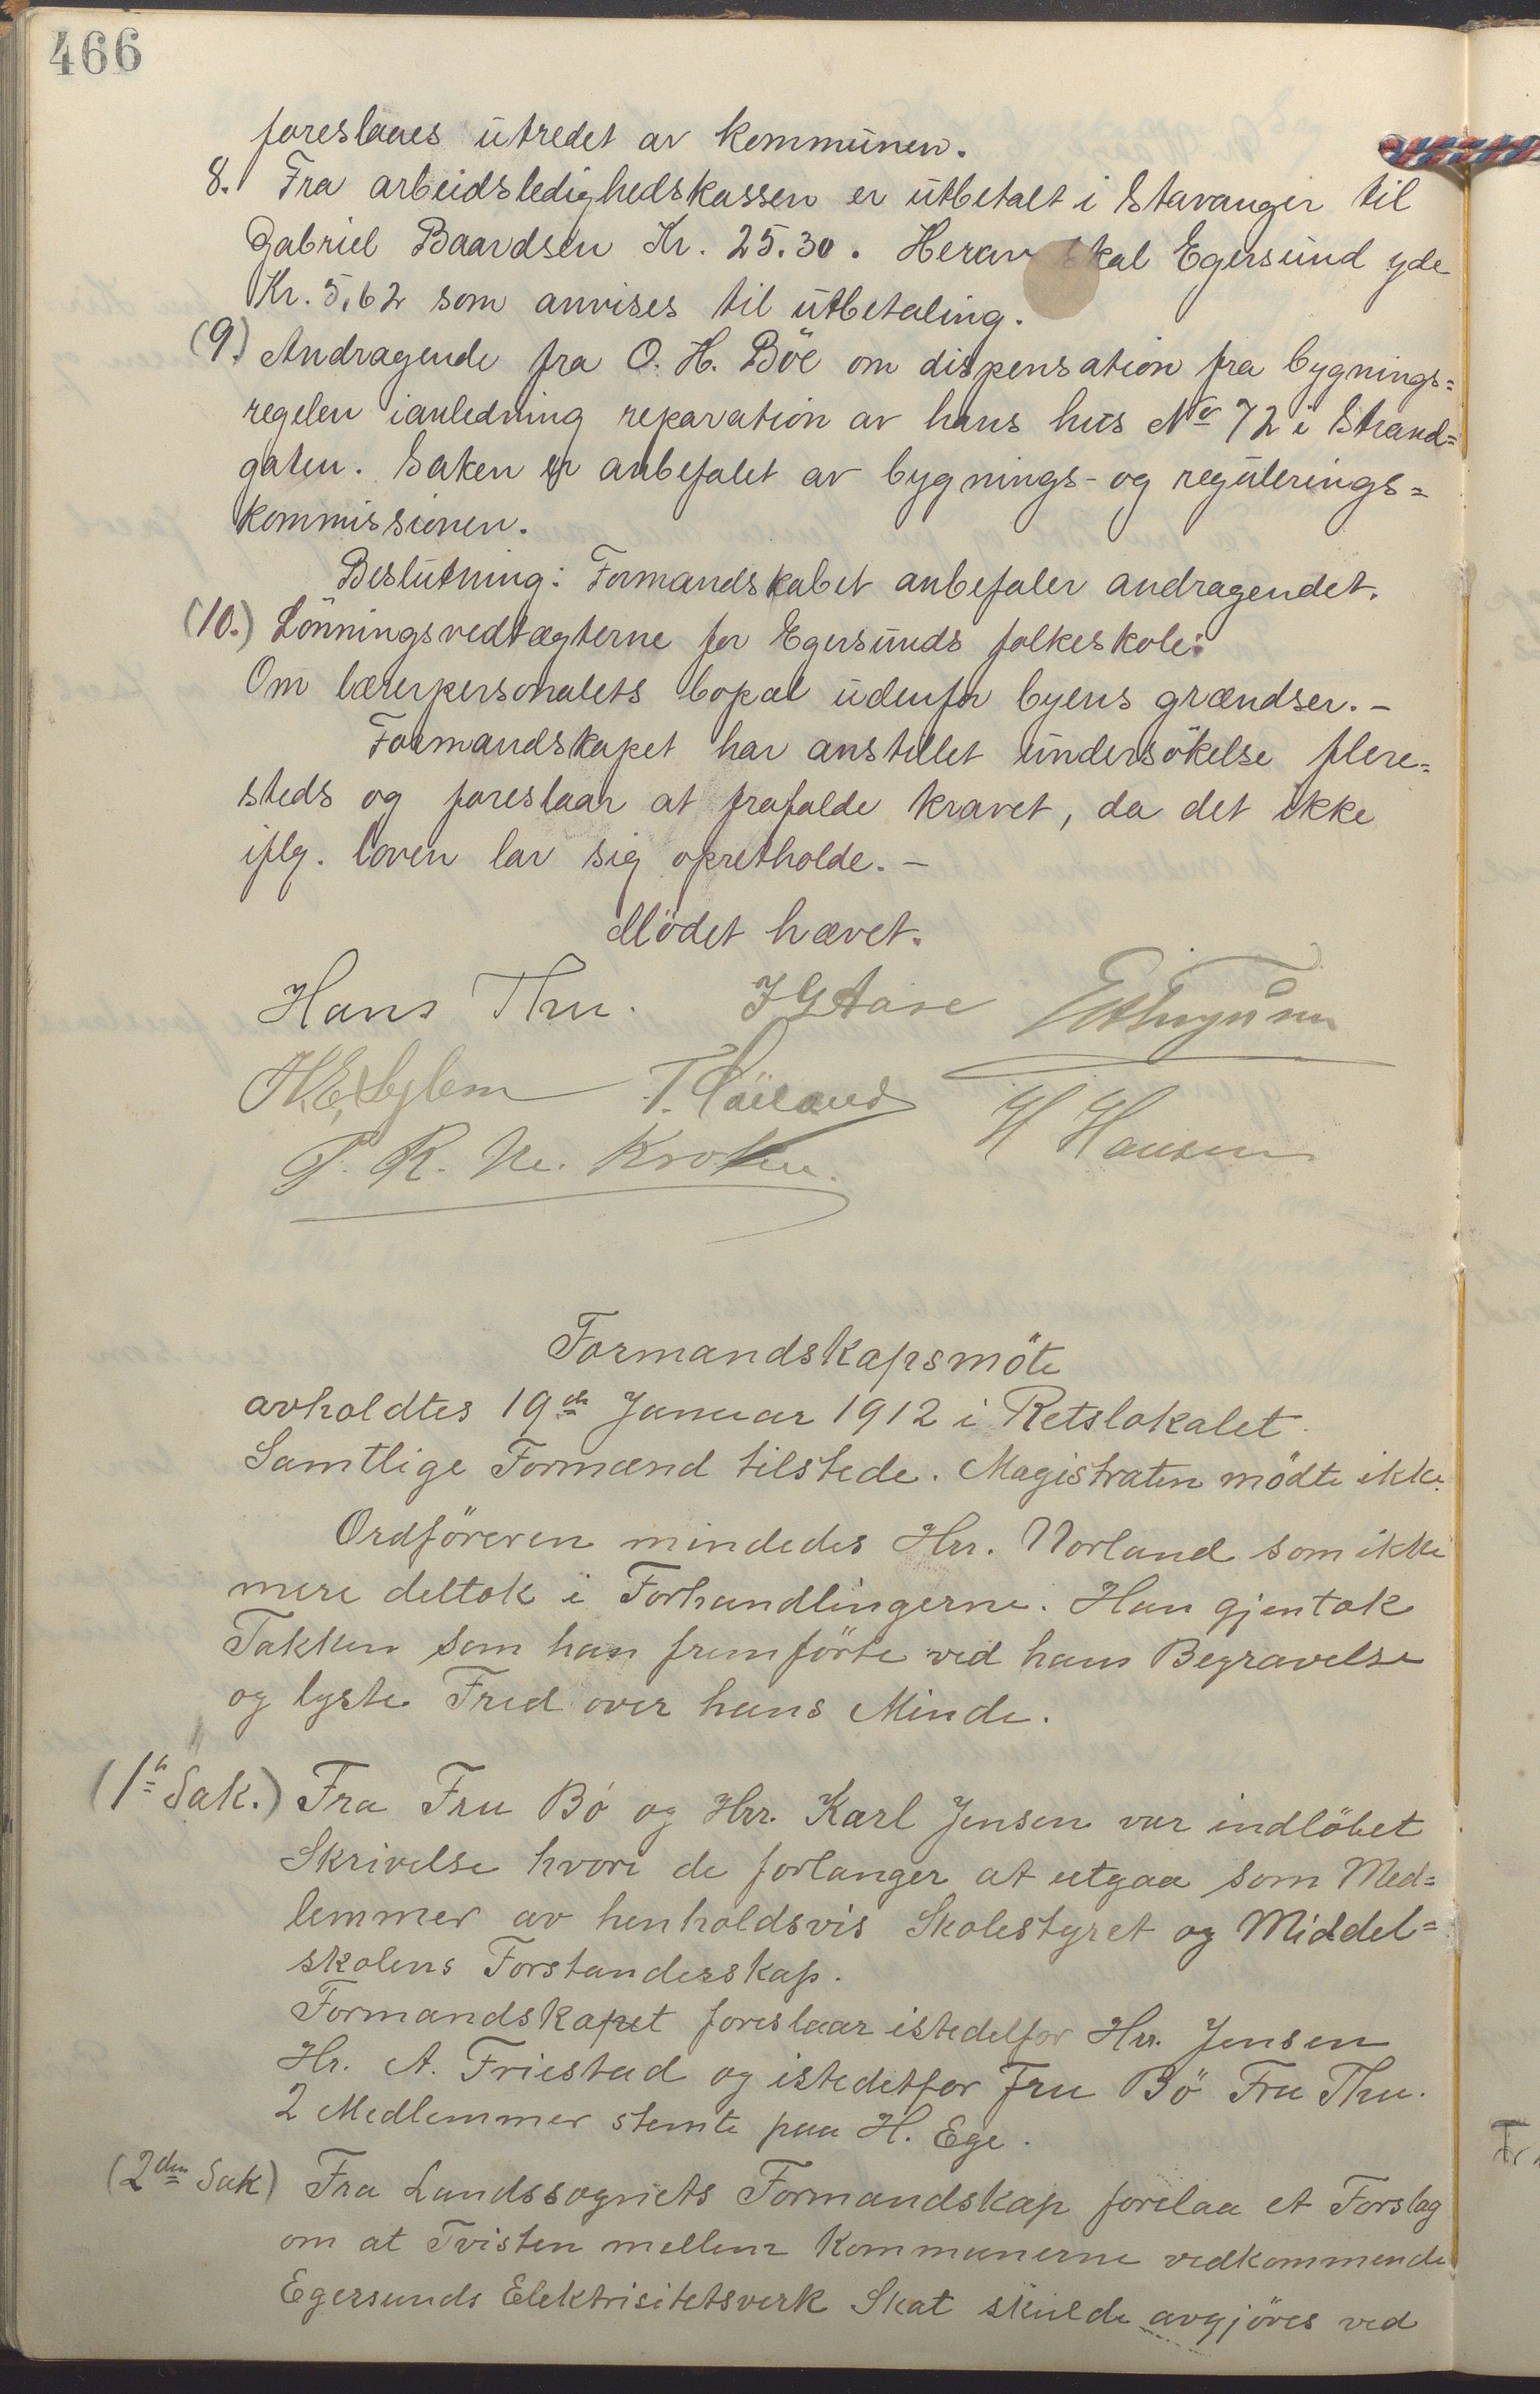 466
foreslaaes utredet av kommunen.
8. Fra arbeidsledighedskassen er utbetalt i Stavanger til
Gabriel Baardsen Kr. 25.30. Herav skal Egersund yde
Kr. 5,62 som anvises til utbetaling.
(9.) Andragende fra O. H. Böe om dispensation fra bygnings=
regelen ianledning reparation av hans hus No 72 i Strand=
gaten. Saken er anbefalet av bygnings- og regulerings=
kommissionen.
Beslutning: Formandskabet anbefaler andragendet.
(10.) Lönningsvedtægterne for Egersunds folkeskole:
Om lærerpersonalets bopæl udenfor byens grændser. -
Formandskapet har anstillet undersökelse flere=
steds og foreslaar at frafalde kravet, da det ikke
iflg. loven lar sig opretholde. -
Mödet hævet.
Hans Thu. J G Aase
T.
P. R. M. Krohn. H Hansen
Formandskapsmöte
avholdtes 19de Januar 1912 i Retslokalet.
Samtlige Formænd tilstede. Magistraten mödte ikke.
Ordföreren mindedes Hrr. Norland som ikke
mere deltok i Forhandlingerne. Han gjentok
Takken som han fremförte ved hans Begravelse
og lyste Fred over hans Minde.
(1ste Sak.) Fra Fru Bö og Hrr. Karl Jensen var indlöbet
Skrivelse hvori de forlanger at utgaa som Med=
lemmer av henholdsvis Skolestyret og Middel=
skolens Forstanderskap.
Formandskapet foreslaar istedetfor Hrr. Jensen
Hr. A. Friestad og istedetfor Fru Bö Fru Thu.
2 Medlemmer stemte paa H. Ege.
(2den Sak) Fra Landssognets Formandskap forelaa et Forslag
om at Tvisten mellem Kommunerne vedkommende
Egersunds Elektrisitetsverk Skat skulde avgjöres ved